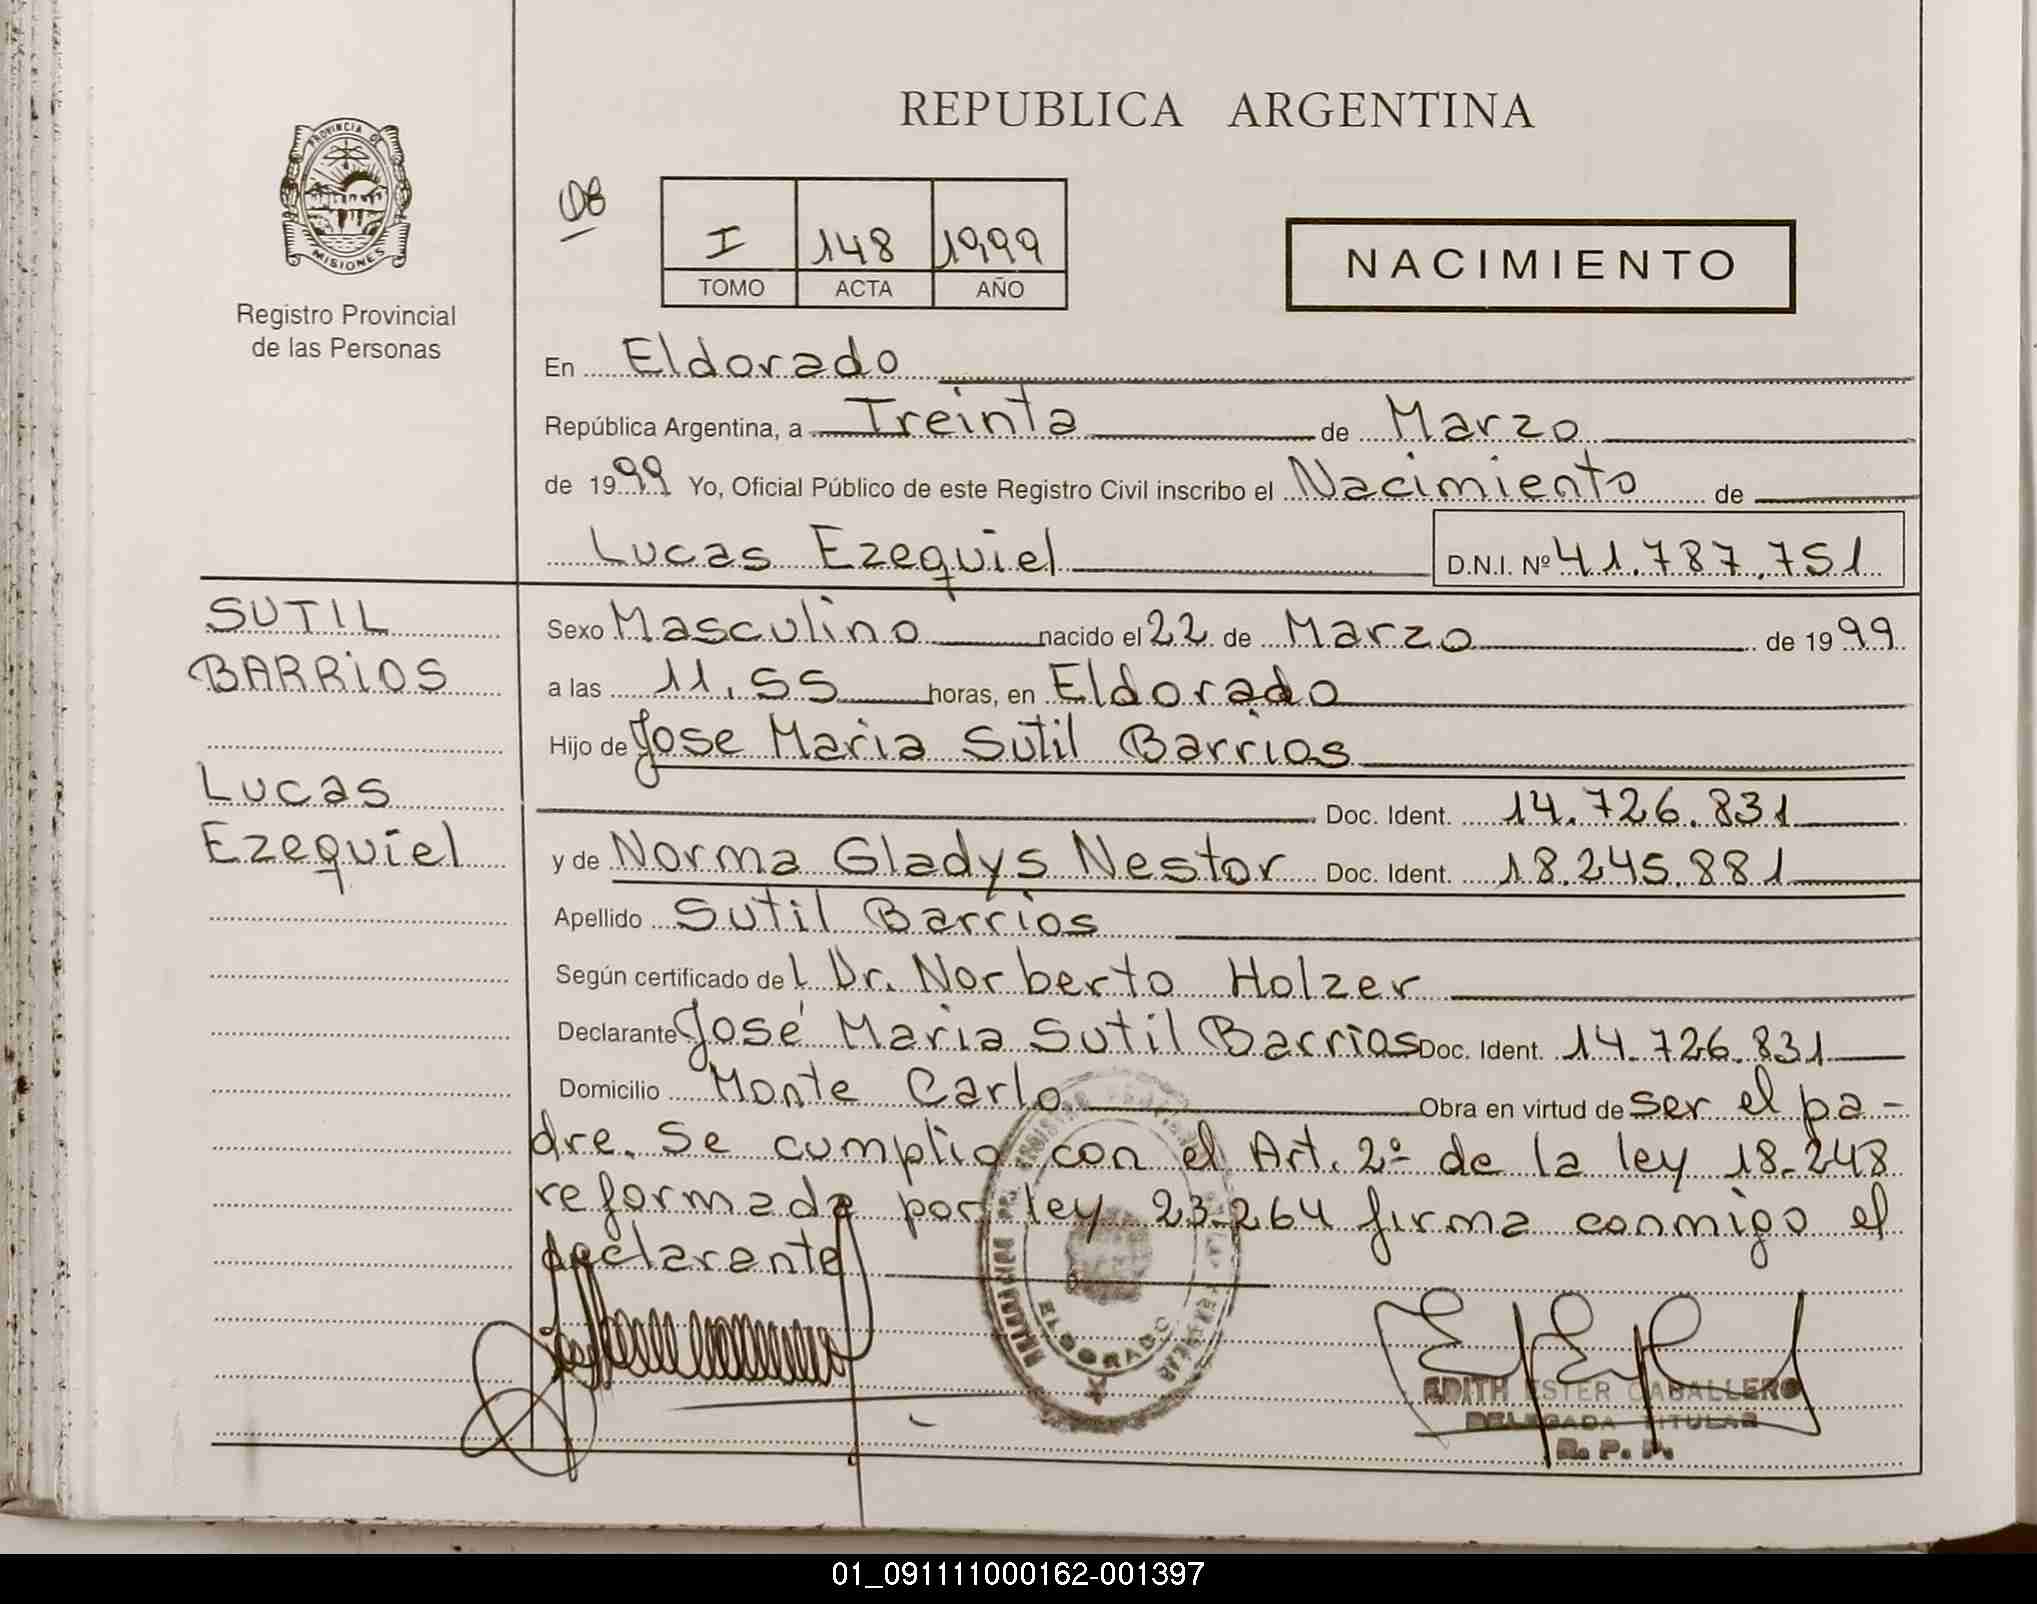 REPUBLICA ARGENTINA
PROVINCIA DE
MISIONES
Registro Provincial
de las Personas
08
I 148 1999
TOMO ACTA AÑO
NACIMIENTO
En Eldorado
República Argentina, a Treinta de Marzo
de 1999 Yo, Oficial Público de este Registro Civil inscribo el Nacimiento de
Lucas Ezequiel D.N.I. Nº 41.787.751
SUTIL
BARRiOS
Lucas
Ezequiel
Sexo Masculino nacido el 22 de Marzo de 1999
a las 11.55 horas, en Eldorado
Hijo de Jose Maria Sutil Barrios
Doc. Ident. 14.726.831
y de Norma Gladys Nestor Doc. Ident. 18.245.881
Apellido Sutil Barrios
Según certificado del Dr. Norberto Holzer
Declarante José Maria Sutil Barrios Doc. Ident. 14.726.831
Domicilio Monte Carlo Obra en virtud de ser el pa-
dre. Se cumplio con el Art. 2º de la ley 18.248
reformada por ley 23.264 firma conmigo el
declarante
ELDORADO
EDITH ESTER CABALLERO
DELEGADA TITULAR
R. P. P.
01_091111000162-001397